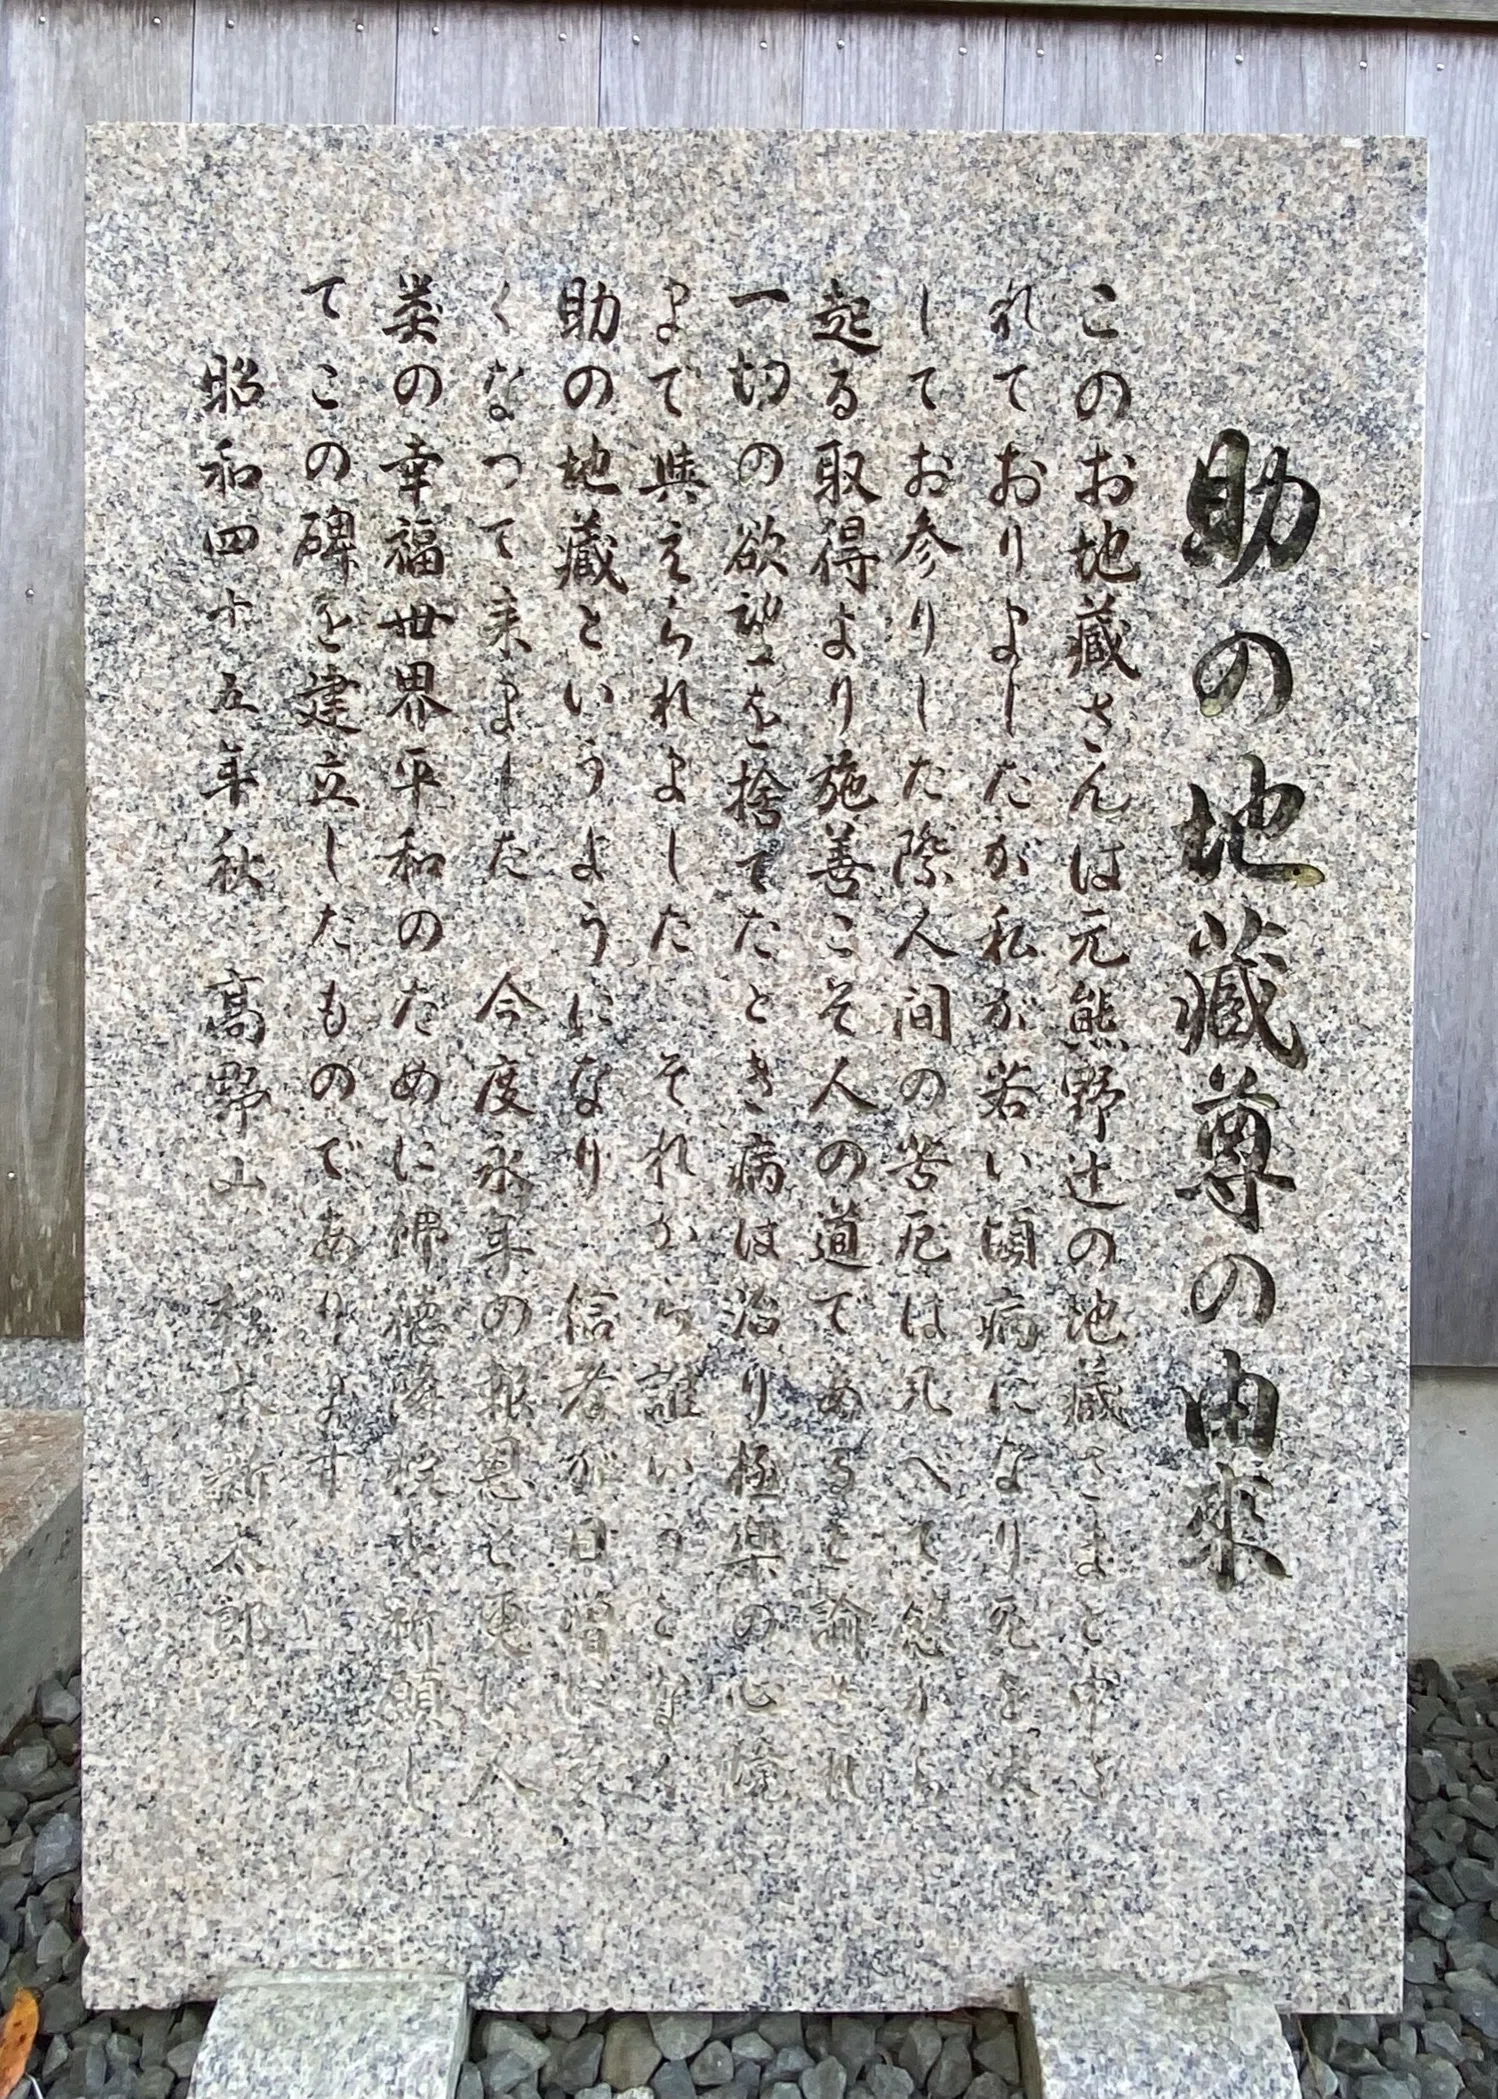 助の地蔵尊の由来
このお地蔵さんは元熊野辻の地蔵さまと申さ
れておりましたが私が若い頃病になり死をま
してお参りした際人間の苦厄は凡べて慾から
起る取得より施善こそ人の道であると諭され
一切の欲望を捨てたとき病は治り極楽の心境
まで與えられました それから誰いうとなく
助の地蔵というようになり 信者が日増に多
くなって来ました 今度永年の報恩と更に人
類の幸福世界平和のために佛徳 祈願し
てこの碑を建立したものであります
昭和四十五年秋 高野山 新太郎